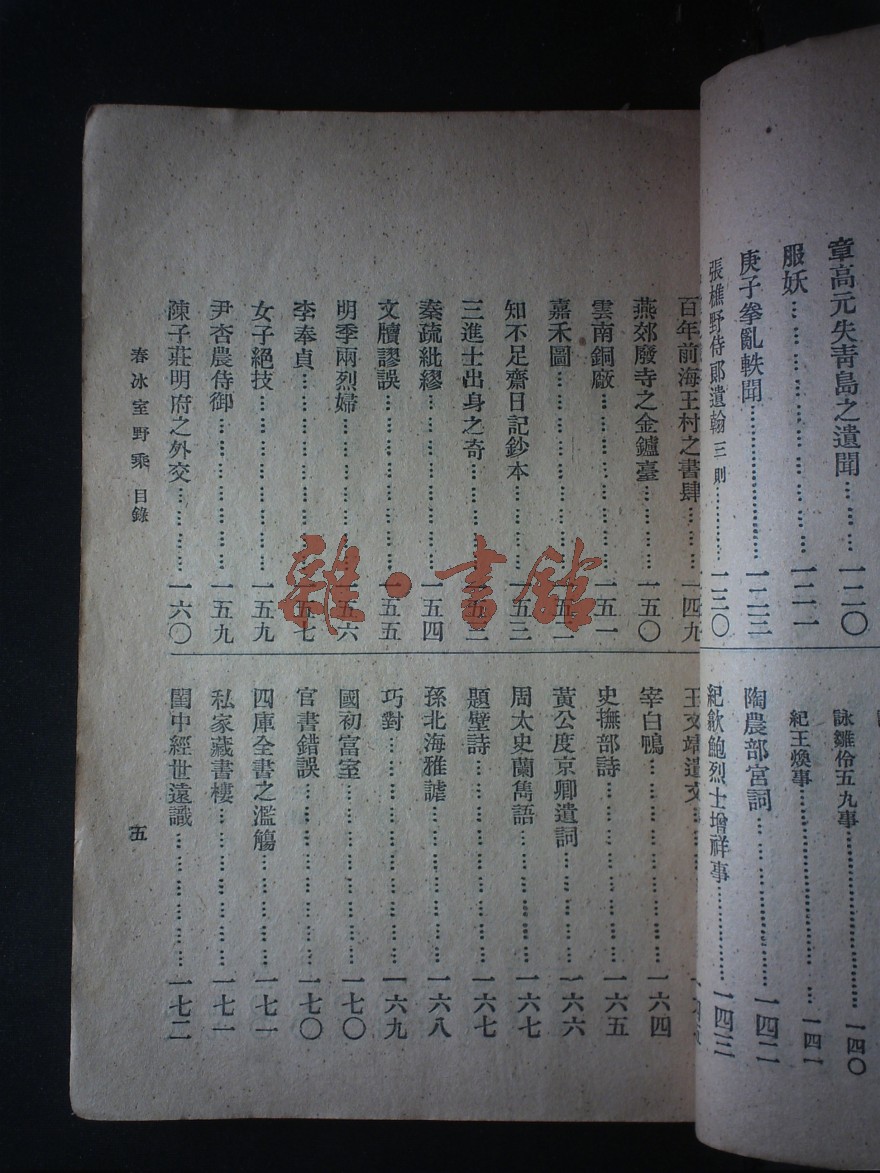 章高元失青島之遺聞………一二〇
服妖……………一二一
庚子拳亂軼聞……………一二三
張樵野侍郎遺翰 三則…………一三〇
詠雛伶五九事……………一四〇
紀王煥事……………一四一
陶農部宮詞……………一四二
紀歙鮑烈士增祥事…………一四三
百年前海王村之書肆………一四九
燕郊廢寺之金鑪臺…………一五〇
雲南銅廠……………一五一
嘉禾圖……………一五二
知不足齋日記鈔本…………一五三
三進士出身之奇……………一五三
秦疏紕繆……………一五四
文牘謬誤……………一五五
明季兩烈婦……………一五六
李奉貞……………一五七
女子絕技……………一五九
尹杏農侍御……………一五九
陳子莊明府之外交…………一六〇
王文靖遺文……………
宰白鴨……………一六四
史撫部詩……………一六五
黃公度京卿遺詞…………一六六
周太史蘭雋語……………一六七
題壁詩……………一六七
孫北海雅謔……………一六八
巧對……………一六九
國初宮室……………一七〇
官書錯誤……………一七〇
四庫全書之濫觴…………一七一
私家藏書樓……………一七一
閨中經世遠識……………一七二
春冰室野乘 目錄
五
雜·書館